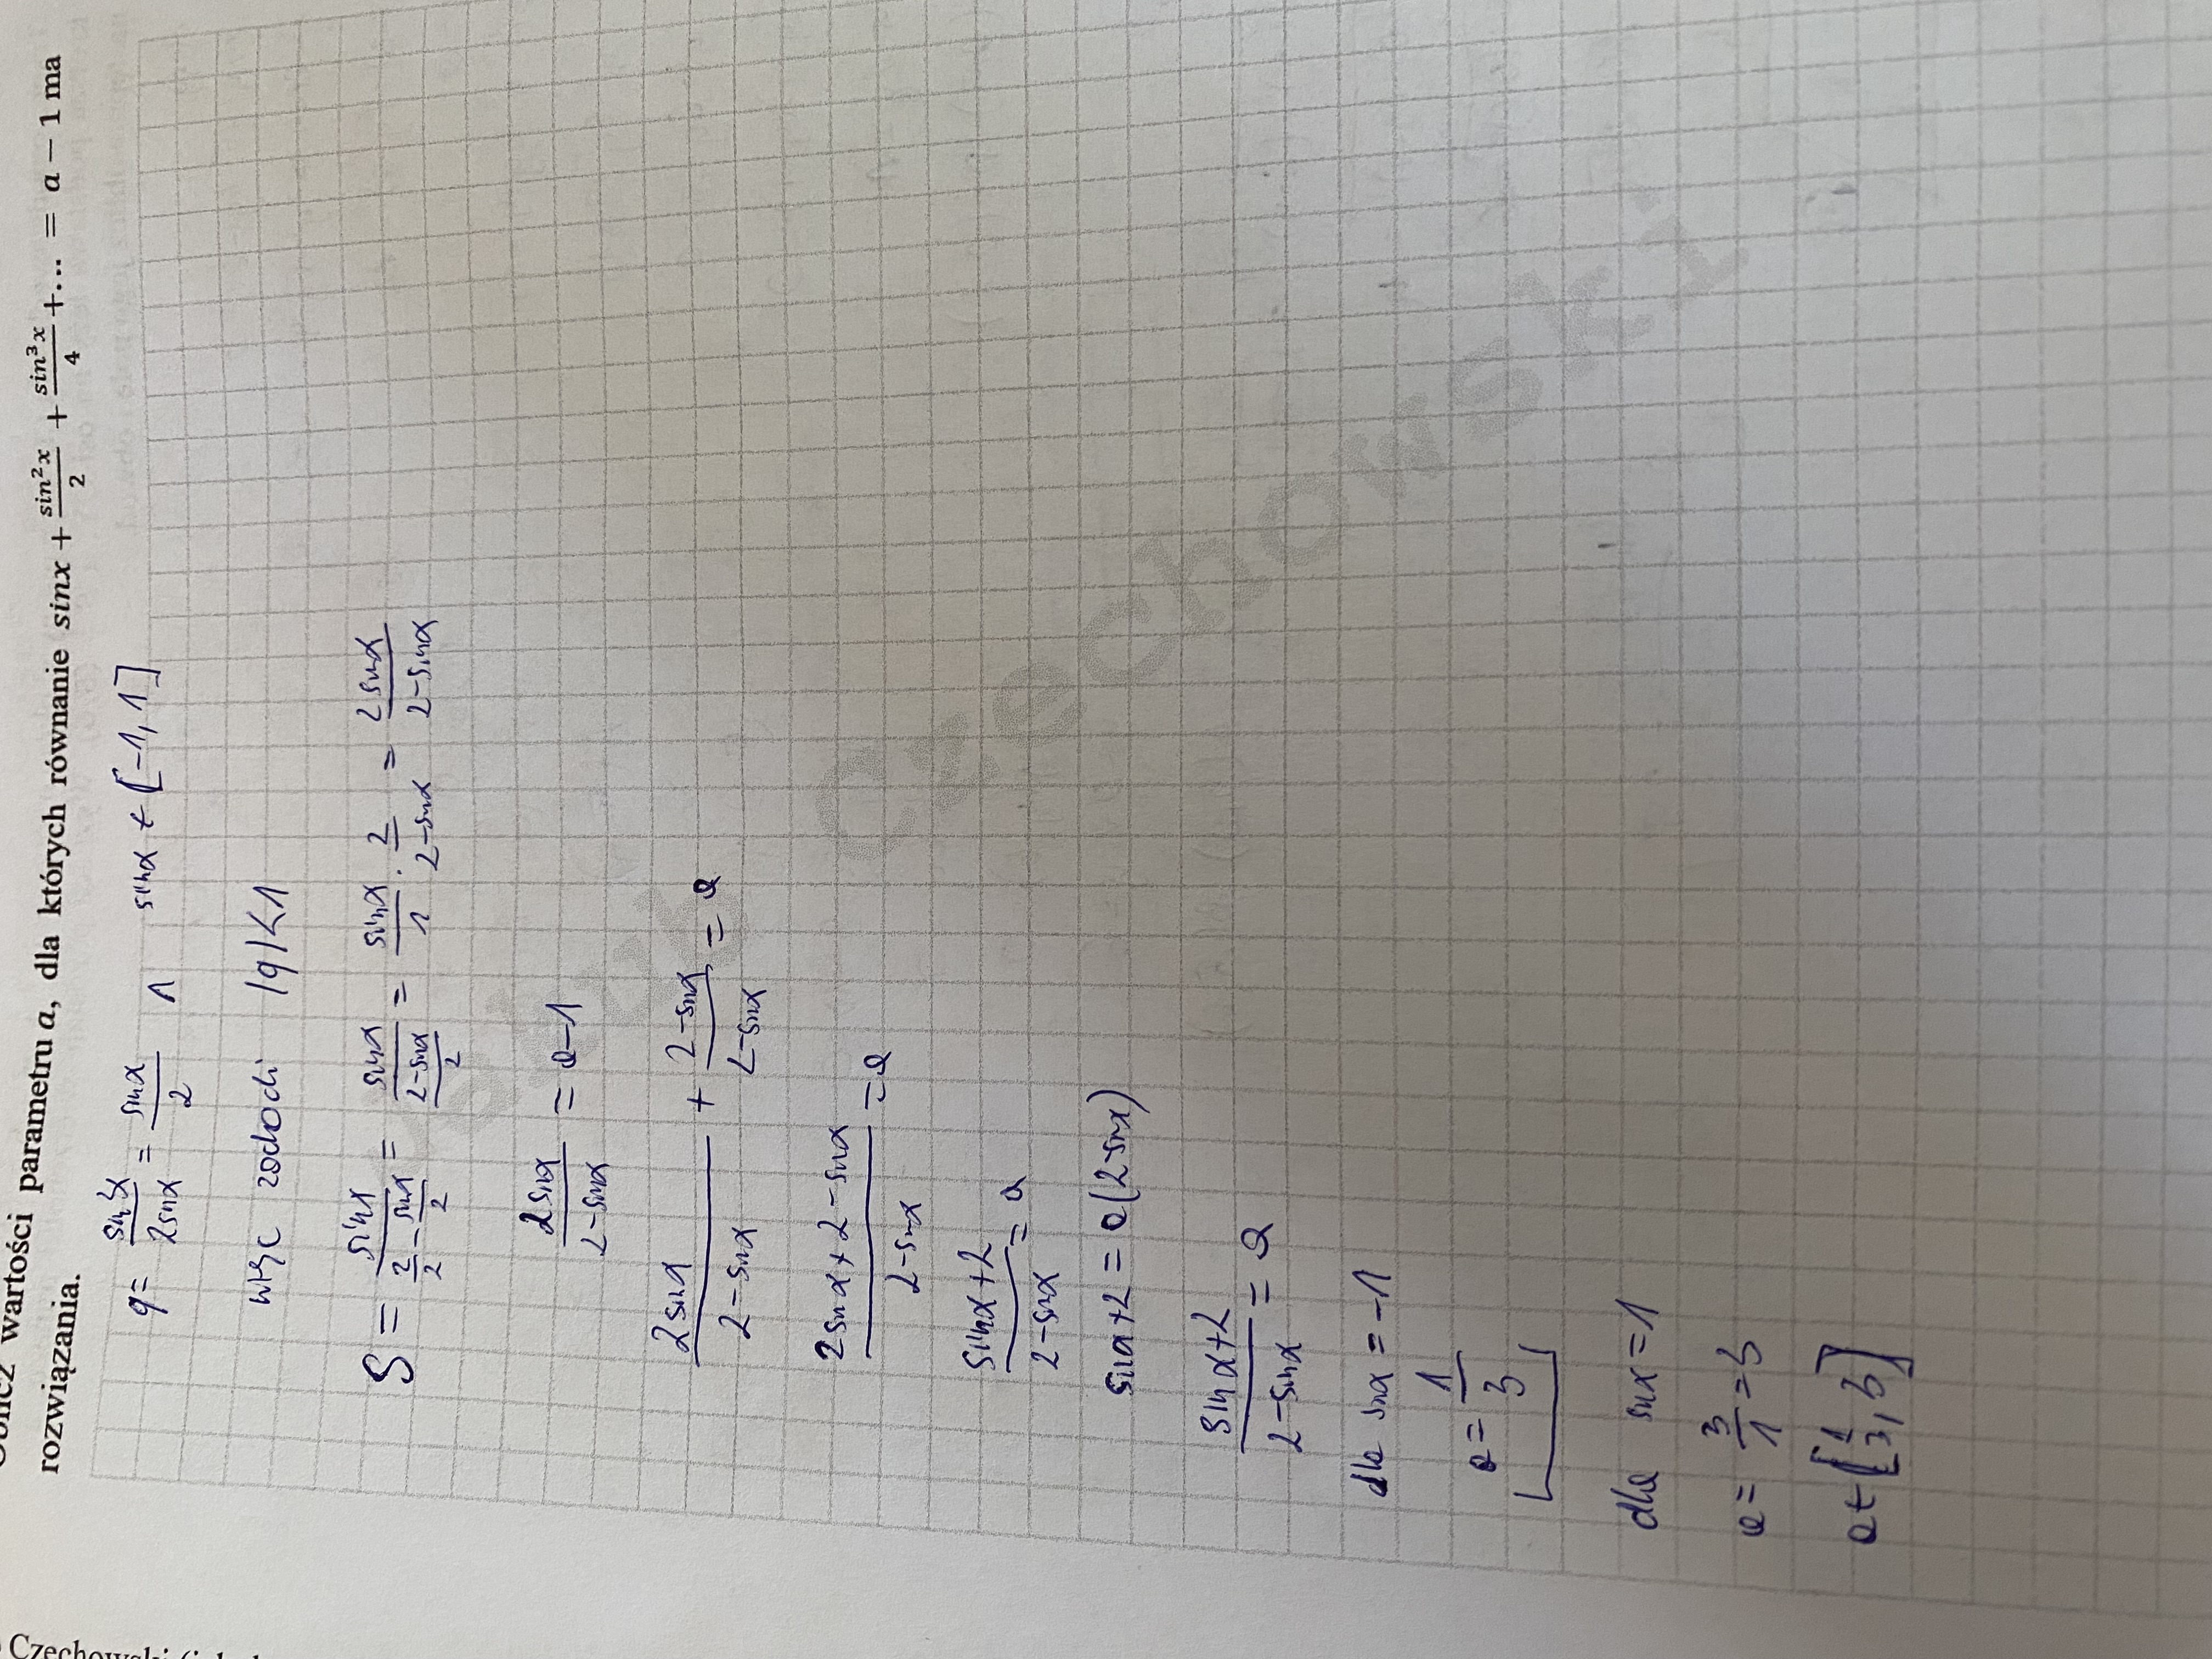 wartości parametru a, dla których równanie sinx + sin²x/2 + sin³x/4 +... = a − 1 ma
rozwiązania.
q = sin²x/2sinx = sinx/2 ∧ sinx ∈ [-1,1]
więc zachodzi |q|<1
S = sinx/(2/2 - sinx/2) = sinx/((2-sinx)/2) = sinx/1 · 2/(2-sinx) = 2sinx/(2-sinx)
2sinx/(2-sinx) = a-1
2sinx/(2-sinx) + (2-sinx)/(2-sinx) = a
(2sinx+2-sinx)/(2-sinx) = a
(sinx+2)/(2-sinx) = a
sinx+2 = a(2-sinx)
(sinx+2)/(2-sinx) = a
dla sinx = -1
a = 1/3
dla sinx = 1
a = 3/1 = 3
a ∈ [1/3, 3]
Czechowski
Czechowski